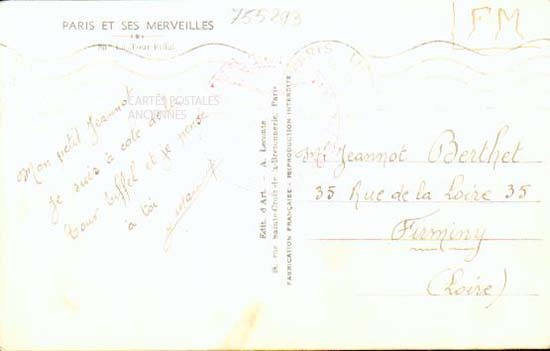 755293
FM
PARIS ET SES MERVEILLES
La Tour Eiffel
PARIS
CARTES POSTALES
ANCIENNES
Mon petit Jeannot
Je suis à coté de la
tour Eiffel et je pense
a toi
Edit. d'Art - A. Leconte
rue Sainte-Croix-de-la-Bretonnerie, Paris
FABRICATION FRANÇAISE - REPRODUCTION INTERDITE
Mr Jeannot Berthet
35 Rue de la Loire 35
Firminy
(Loire)